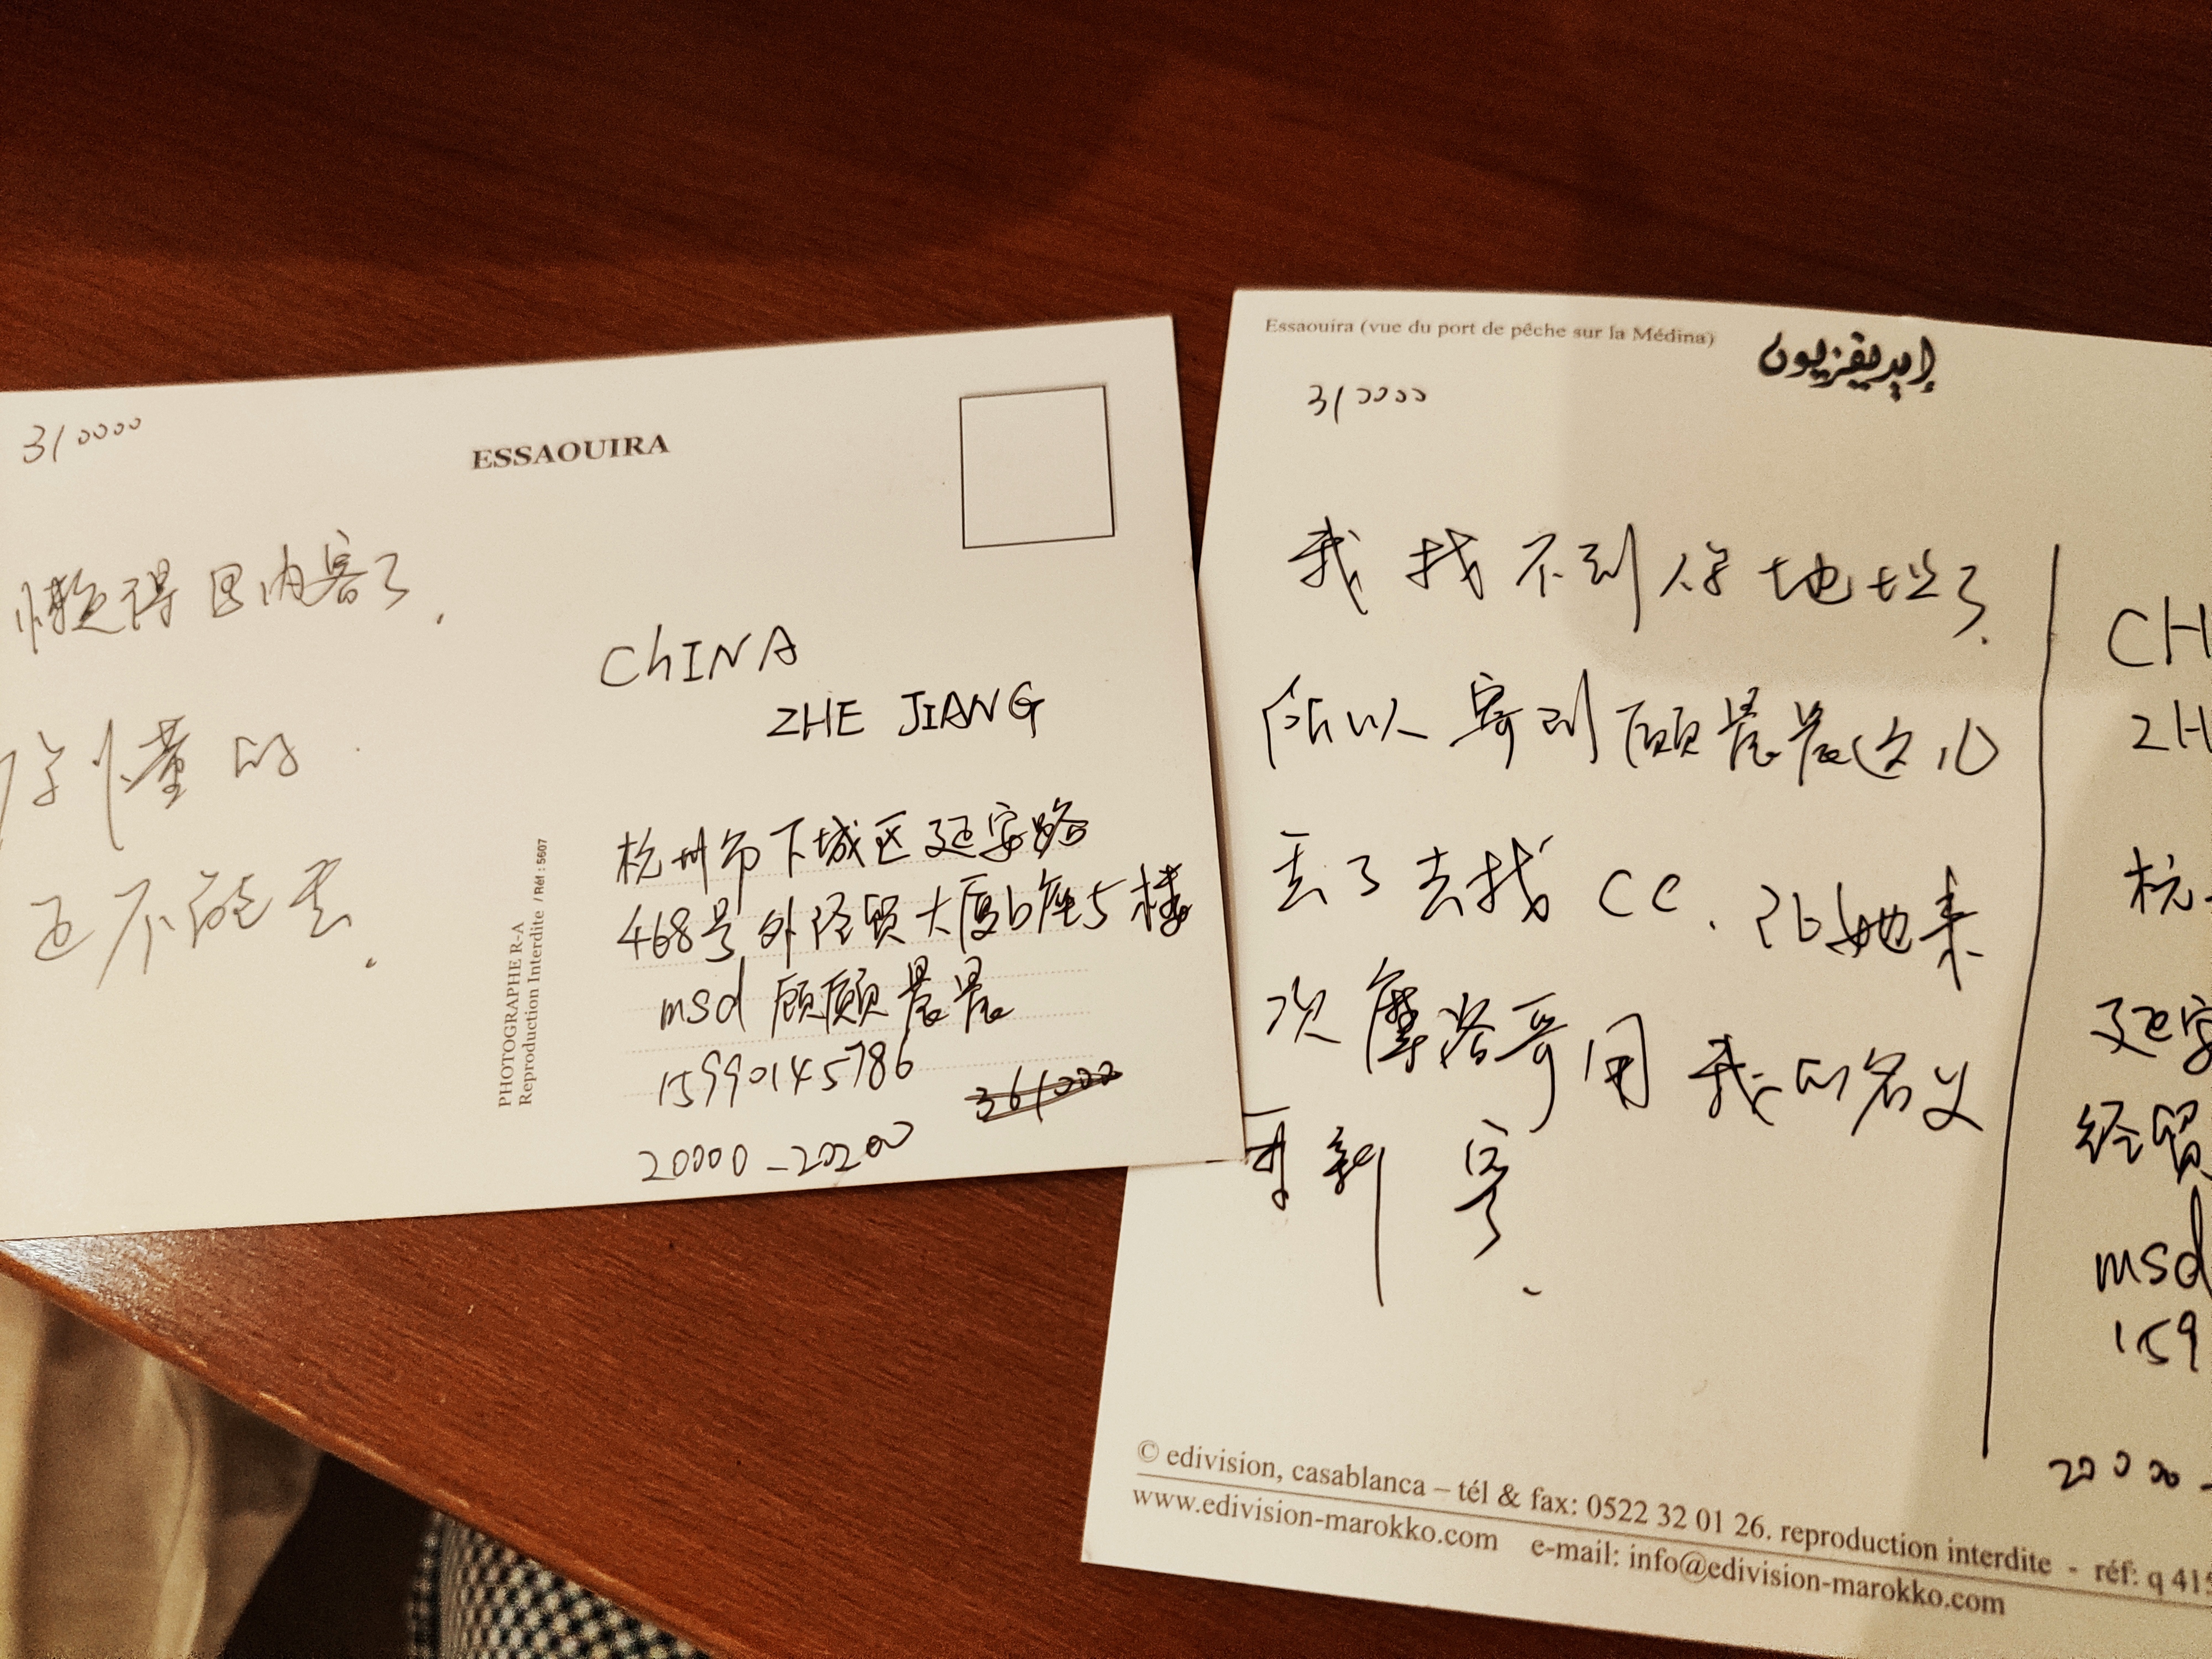 310000
ESSAOUIRA
懒得回内容了.
你懂的.
还不能丢.
PHOTOGRAPHE R-A
Reproduction Interdite / Réf : 5607
ChINA
ZHE JIANG
杭州市下城区延安路
468号外经贸大厦b座5楼
msd 顾顾晨晨
15990145786
361000
20000-20200
Essaouira (vue du port de pêche sur la Médina)
إيديفزيون
310000
我找不到你地址了.
所以寄到顾晨晨这儿
丢了去找CC. 让她来
次摩洛哥用我的名义
重新寄.
CH
ZH
杭
延安
经贸
msd
159
20000-
© edivision, casablanca – tél & fax: 0522 32 01 26. reproduction interdite - réf: q 415
www.edivision-marokko.com e-mail: info@edivision-marokko.com